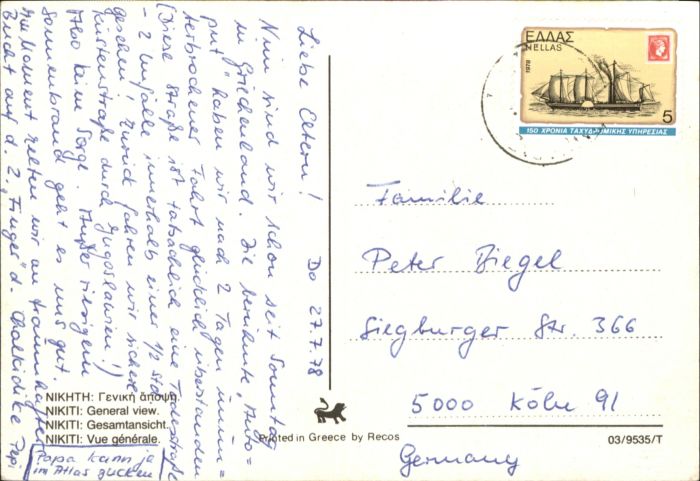 Liebe Eltern! Do 27.7.78
Nun sind wir schon seit Sonntag
in Griechenland. Die berühmte „Auto=
put“ haben wir nach 2 Tagen unun=
terbrochener Fahrt glücklich überstanden
(Diese Straße ist tatsächlich eine Todesstraße
- 2 Unfälle innerhalb einer 1/2 Std.
gesehen! Zurück fahren wir sicherer
Küstenstraße durch Jugoslawien!)
Also keine Sorge. Außer riesigem
Sonnenbrand geht es uns gut.
Im Moment zelten wir an traumhafter
Bucht auf d. 2. „Finger“ d. Chalkidike
Papa kann ja
im Atlas gucken
ΕΛΛΑΣ
HELLAS
1978
5
150 ΧΡΟΝΙΑ ΤΑΧΥΔΡΟΜΙΚΗΣ ΥΠΗΡΕΣΙΑΣ
Familie
Peter Biegel
Siegburger Str. 366
5000 Köln 91
Germany
ΝΙΚΗΤΗ: Γενική ἄποψη.
NIKITI: General view.
NIKITI: Gesamtansicht.
NIKITI: Vue générale.
Printed in Greece by Recos
03/9535/T